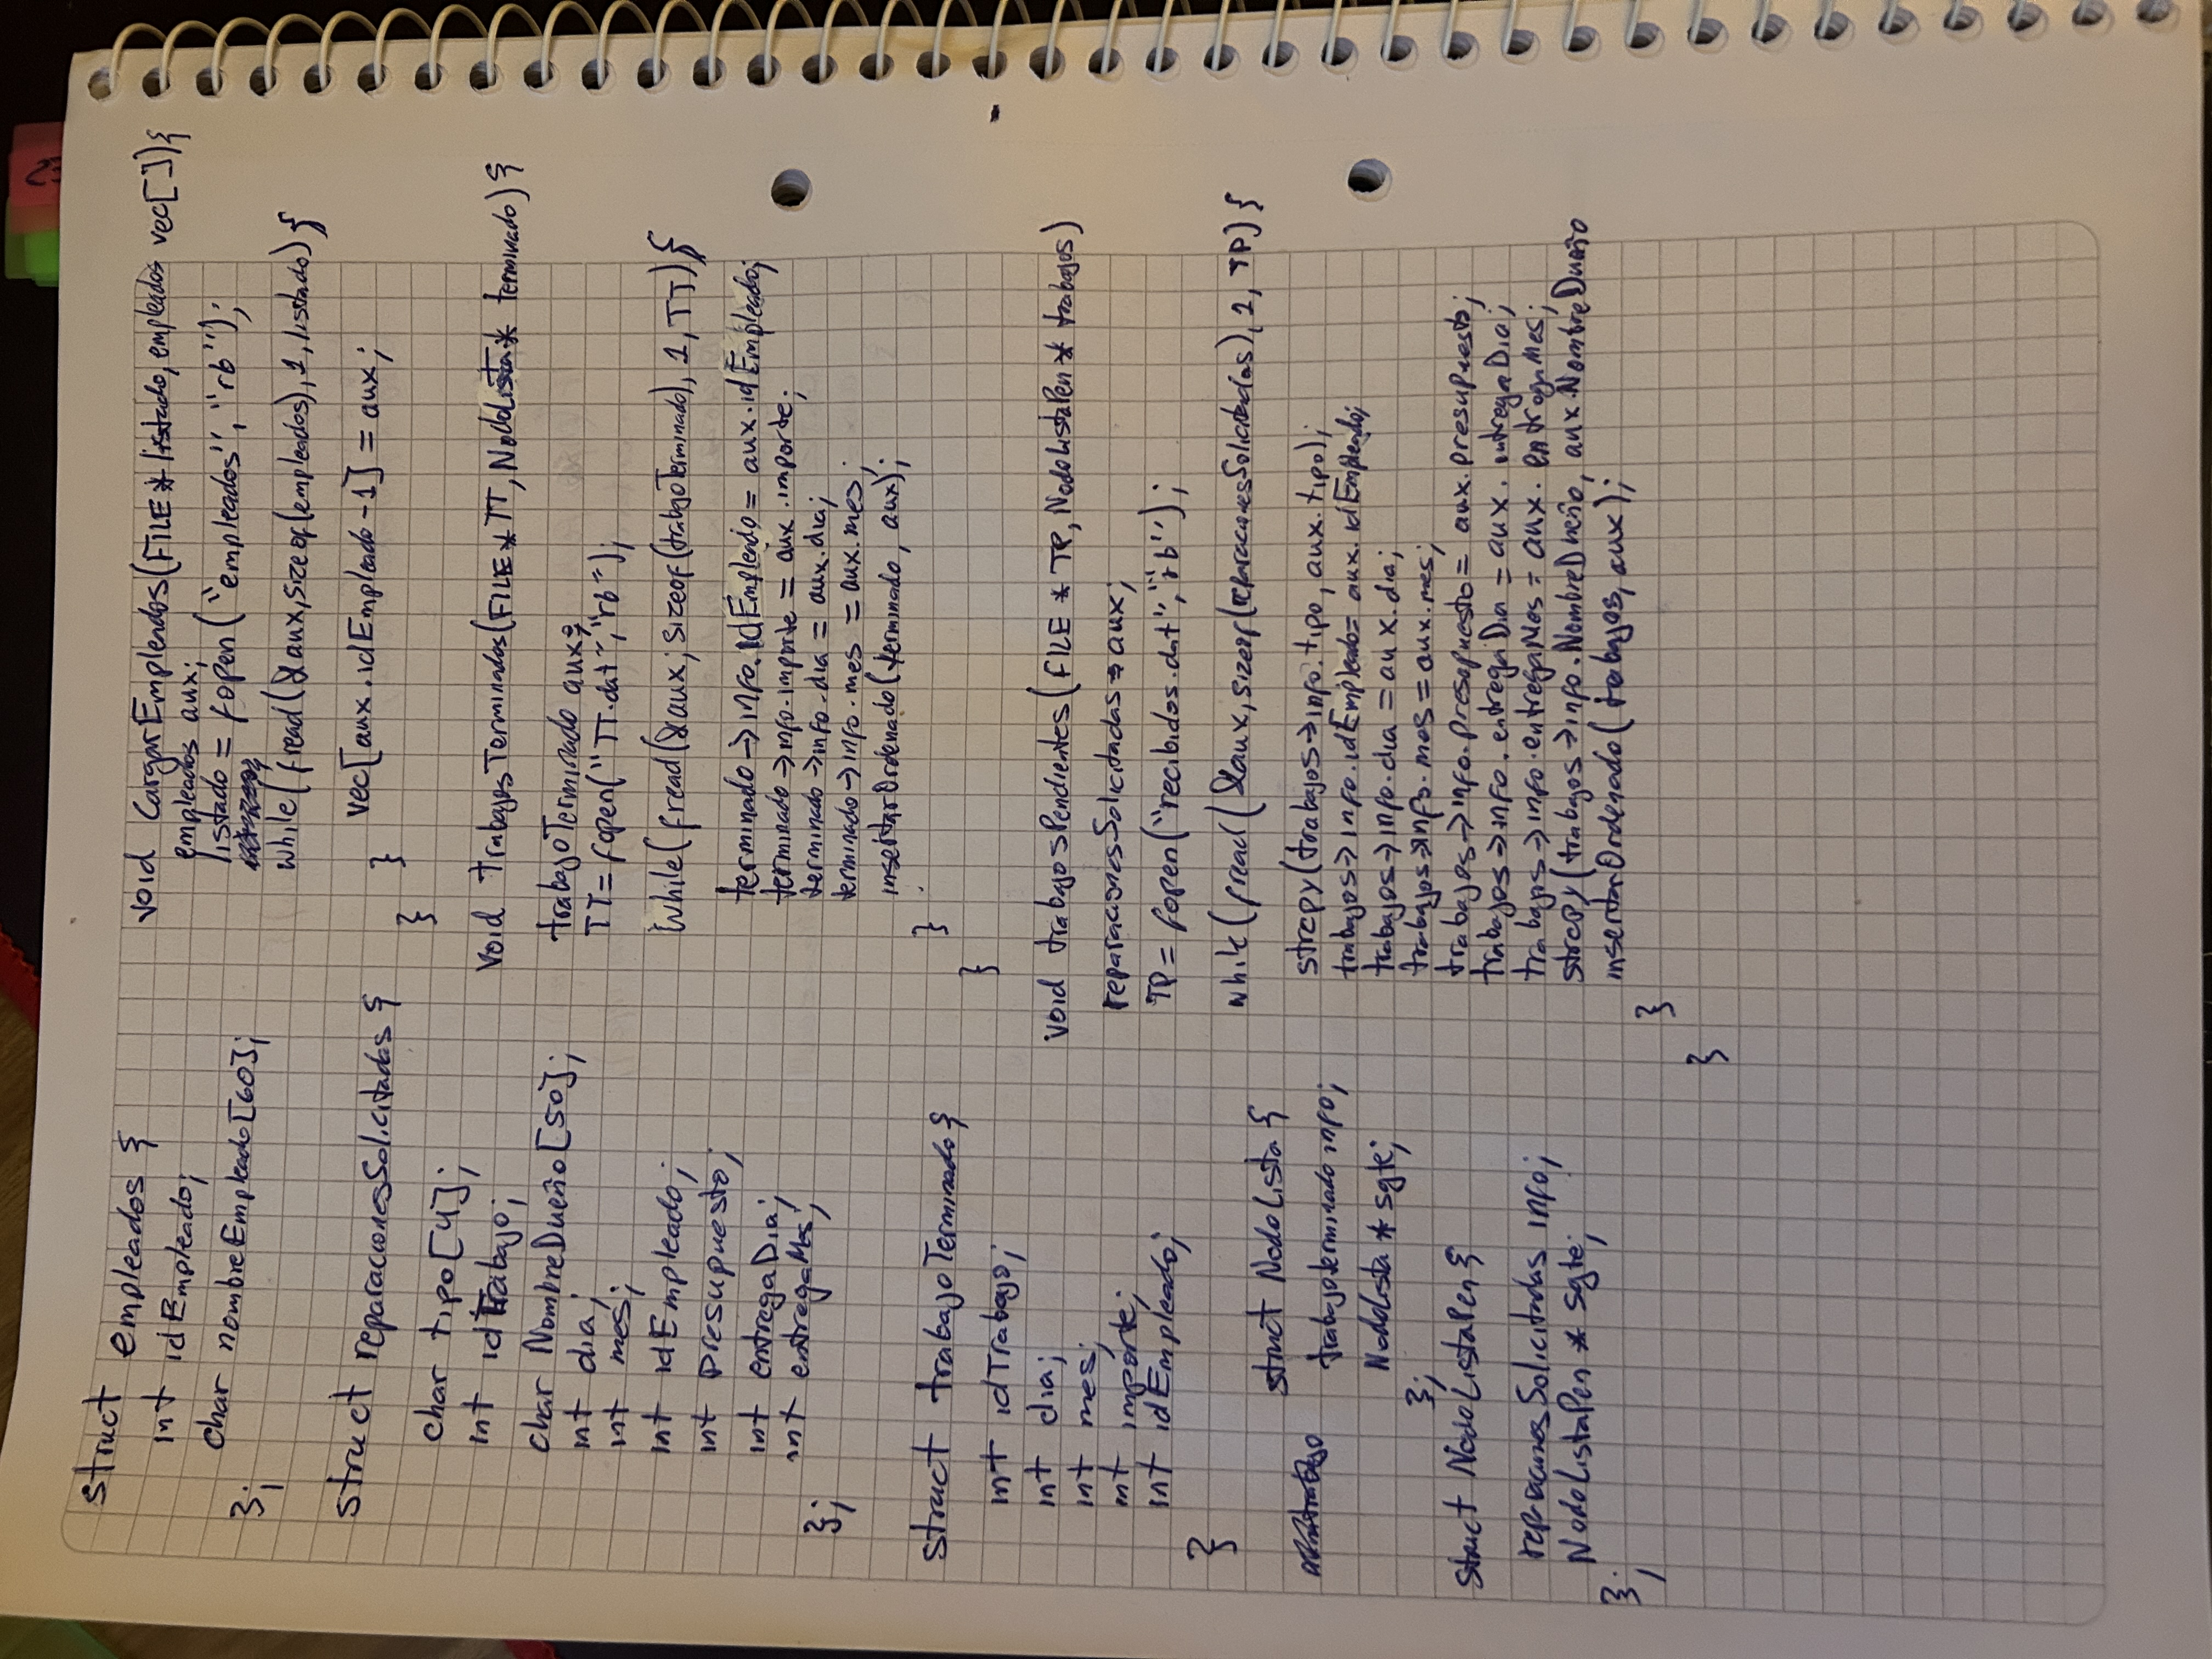 struct empleados {
int idEmpleado;
char nombreEmpleado[60];
};
struct reparacionesSolicitadas {
char tipo[4];
int idTrabajo;
char NombreDueño[50];
int dia;
int mes;
int idEmpleado;
int presupuesto;
int entregaDia;
int entregaMes;
};
struct trabajoTerminado {
int idTrabajo;
int dia;
int mes;
int importe;
int idEmpleado;
}
struct NodoLista {
trabajoterminado info;
NodoLista * sgte;
};
struct NodoListaPen {
reparacionesSolicitadas info;
NodoListaPen * sgte;
};
void CargarEmpleados(FILE * listado, empleados vec[ ]){
empleados aux;
listado = fopen("empleados", "rb");
while(fread(&aux,sizeof(empleados),1,listado){
vec[aux.idEmpleado-1] = aux;
}
}
void trabajosTerminados(FILE * TT, NodoLista * terminado){
trabajoTerminado aux;
TT = fopen("TT.dat","rb");
while(fread(&aux; sizeof(trabajoTerminado), 1, TT){
terminado->info.idEmpleado = aux.idEmpleado;
terminado->info.importe = aux.importe;
terminado->info.dia = aux.dia;
terminado->info.mes = aux.mes;
insertarOrdenado(terminado, aux);
}
}
void trabajosPendientes(FILE * TP, NodoListaPen * trabajos)
reparacionesSolicitadas aux;
TP = fopen("recibidos.dat","rb");
while(fread(&aux, sizeof(reparacionesSolicitadas), 1, TP){
strcpy(trabajos->info.tipo, aux.tipo);
trabajos->info.idEmpleado = aux.idEmpleado;
trabajos->info.dia = aux.dia;
trabajos->info.mes = aux.mes;
trabajos->info.presupuesto = aux.presupuesto;
trabajos->info.entregaDia = aux.entregaDia;
trabajos->info.entregaMes = aux.entregaMes;
strcpy(trabajos->info.NombreDueño, aux.NombreDueño
insertarOrdenado(trabajos, aux);
}
}